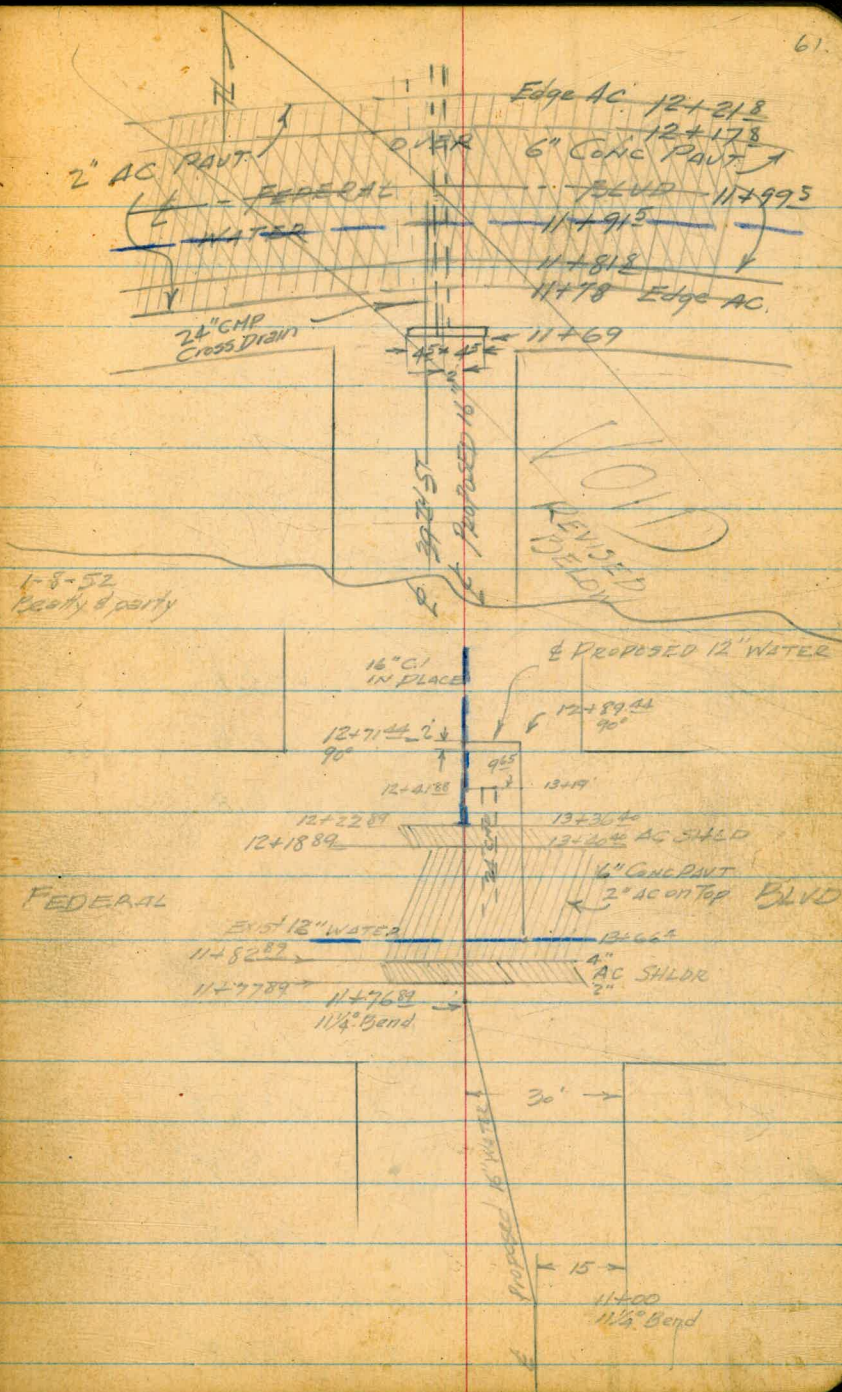 61.
Edge AC 12+21 8
12+17 8
2" AC PAVT. OVER 6" CONC PAVT.
℄ - FEDERAL - BLVD 11+99 5
WATER 11+91 5
11+81 8
11+78 Edge AC.
24" CMP
Cross Drain
11+69
4 5 4 5
2
℄ 39TH ST
℄ PROPOSED 16"
VOID
REVISED
BELOW
1-8-52
Beatty & party
16" C.I
IN PLACE
℄ PROPOSED 12" WATER
12+71 44 2'
90°
12+89.44
90°
9 65
13+19
12+22 89
12+18 89
AC SHLD
24" CMP
6" CONC PAVT
2" AC ON TOP
FEDERAL BLVD
EXIST 12" WATER
13+66 4
11+82 89
4"
AC SHLDR
2"
11+77 89
11+76 89
11¼° Bend
30'
Proposed 16" WATER
15
11+00
11¼° Bend
℄